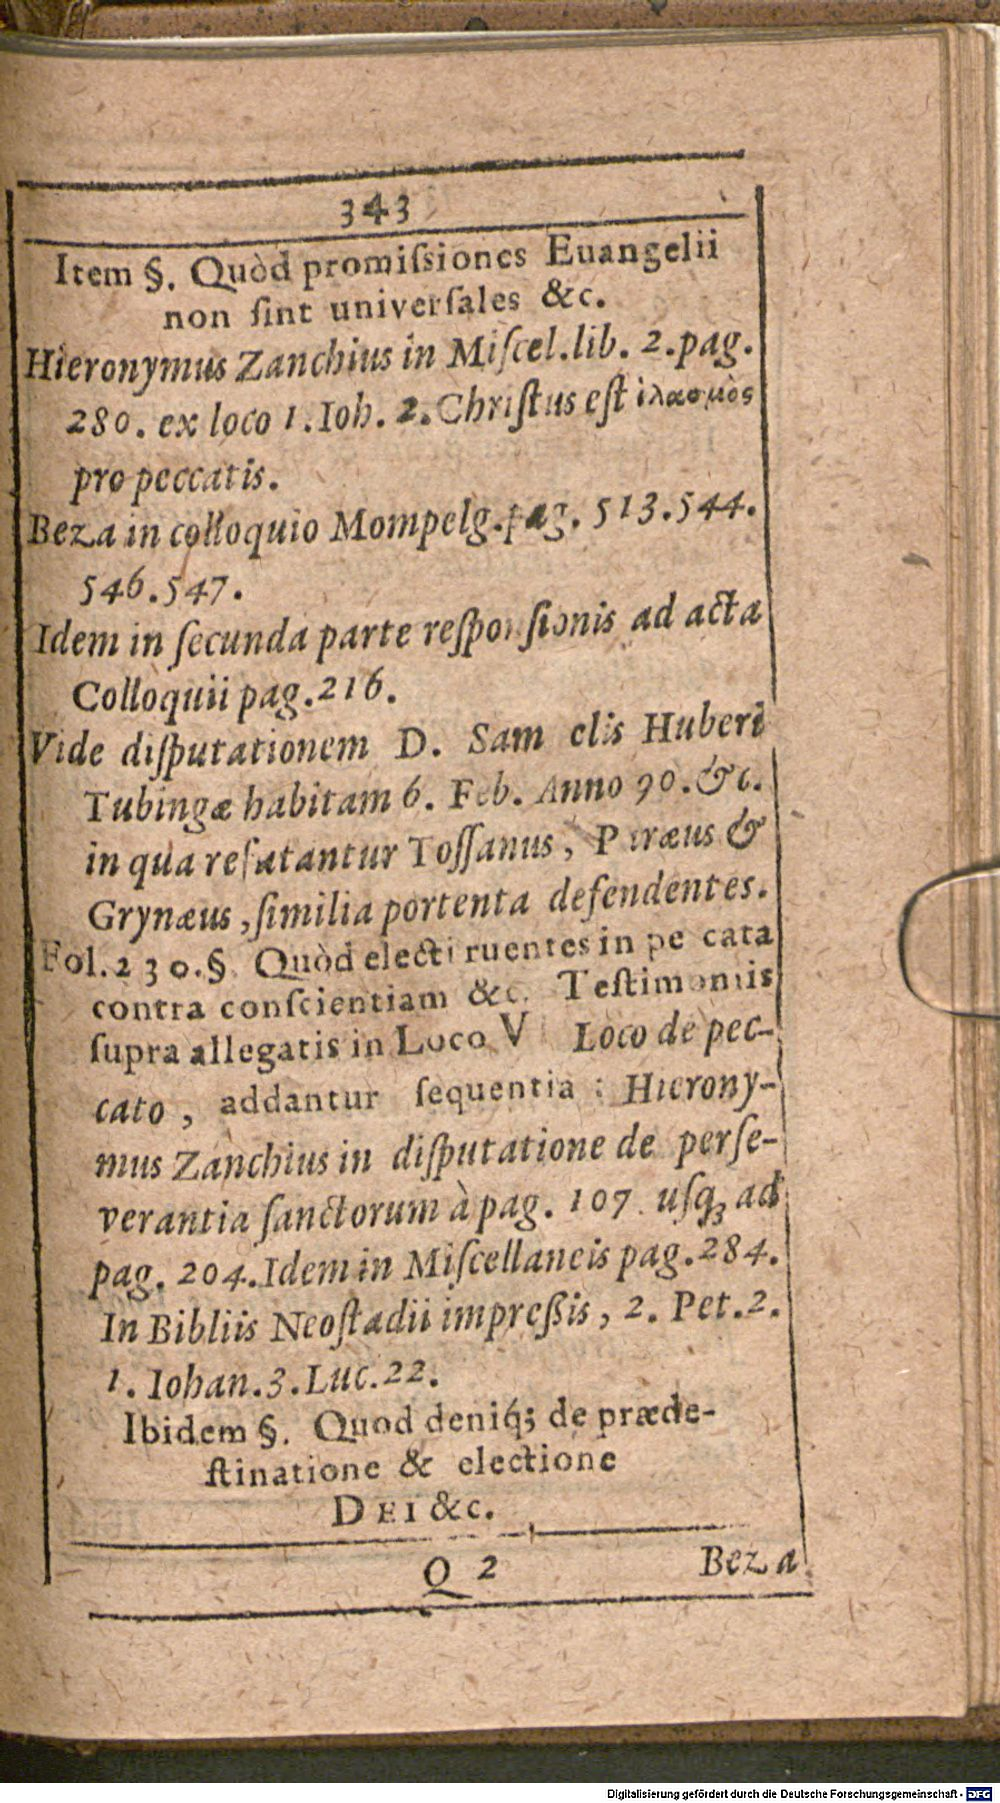 343
Item §. Quòd promiſsiones Euangelii
non ſint univerſales &c.
Hieronymus Zanchius in Miſcel.lib. 2.pag.
280. ex loco 1. Ioh. 2. Chriſtus eſt ἱλασμὸς
pro peccatis.
Beza in colloquio Mompelg.pag. 513.544.
546.547.
Idem in ſecunda parte reſponſionis ad acta
Colloquii pag.216.
Vide diſputationem D. Sam elis Huberi
Tubingæ habitam 6. Feb. Anno 90.&c.
in qua refutantur Toſſanus, P ræus &
Grynæus, ſimilia portenta defendentes.
Fol.230.§. Quòd electi ruentes in pe cata
contra conſcientiam &c. Teſtimoniis
ſupra allegatis in Loco V Loco de pec-
cato, addantur ſequentia : Hierony-
mus Zanchius in diſputatione de perſe-
verantia ſanctorum à pag. 107. uſqꝫ ad
pag. 204. Idem in Miſcellaneis pag.284.
In Bibliis Neoſtadii impreßis, 2. Pet.2.
1. Iohan.3.Luc.22.
Ibidem §. Quod deniq́ꝫ de præde-
ſtinatione & electione
DEI &c.
Q 2 Beza
Digitalisierung gefördert durch die Deutsche Forschungsgemeinschaft - DFG